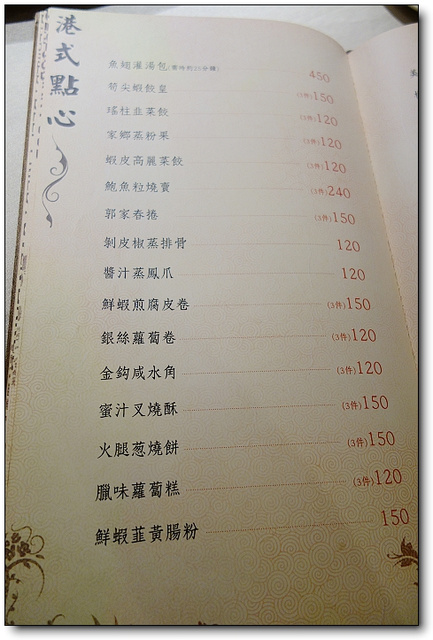 港式點心
魚翅灌湯包(需時約25分鐘) 450
筍尖蝦餃皇 (3件)150
瑤柱韭菜餃 (3件)120
家鄉蒸粉果 (3件)120
蝦皮高麗菜餃 (3件)120
鮑魚粒燒賣 (3件)240
郭家春捲 (3件)150
剝皮椒蒸排骨 120
醬汁蒸鳳爪 120
鮮蝦煎腐皮卷 (3件)150
銀絲蘿蔔卷 (3件)120
金鈎咸水角 (3件)120
蜜汁叉燒酥 (3件)150
火腿葱燒餅 (3件)150
臘味蘿蔔糕 (3件)120
鮮蝦韮黃腸粉 150